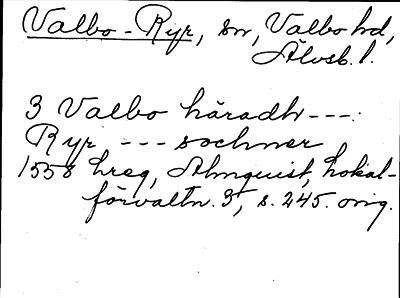 Valbo-Ryr, sn, Valbo hd,
Älvsb. l.
3 Valbo häradh ---:
Ryr --- sochner
1558 hreg, Almquist, Lokal-
förvaltn. 3, s. 245. orig.